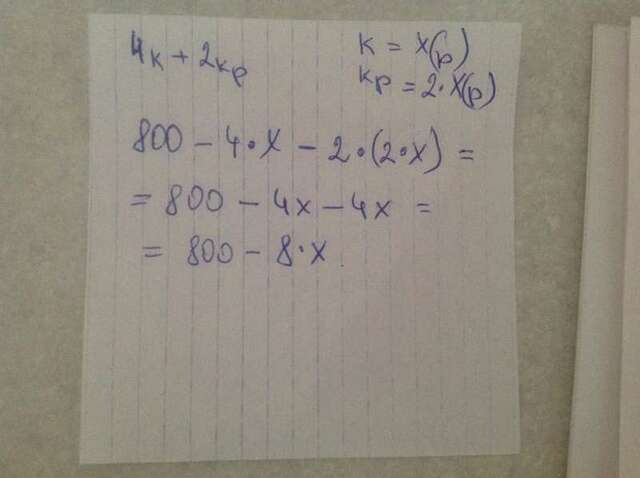 4к + 2кр
к = x(р)
кр = 2·x(р)
800 - 4·x - 2·(2·x) =
= 800 - 4x - 4x =
= 800 - 8·x.